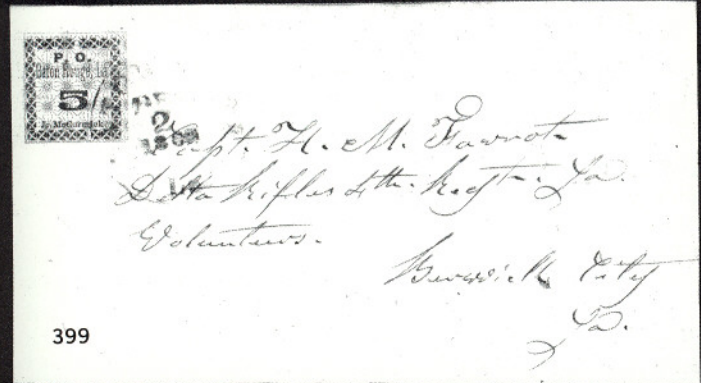 P. O.
Baton Rouge, La.
5
J. McCormick.
2
Capt. H. M. Favrot
Delta Rifles 4th. Regt. La.
Volunteers.
Berwick City
La.
399